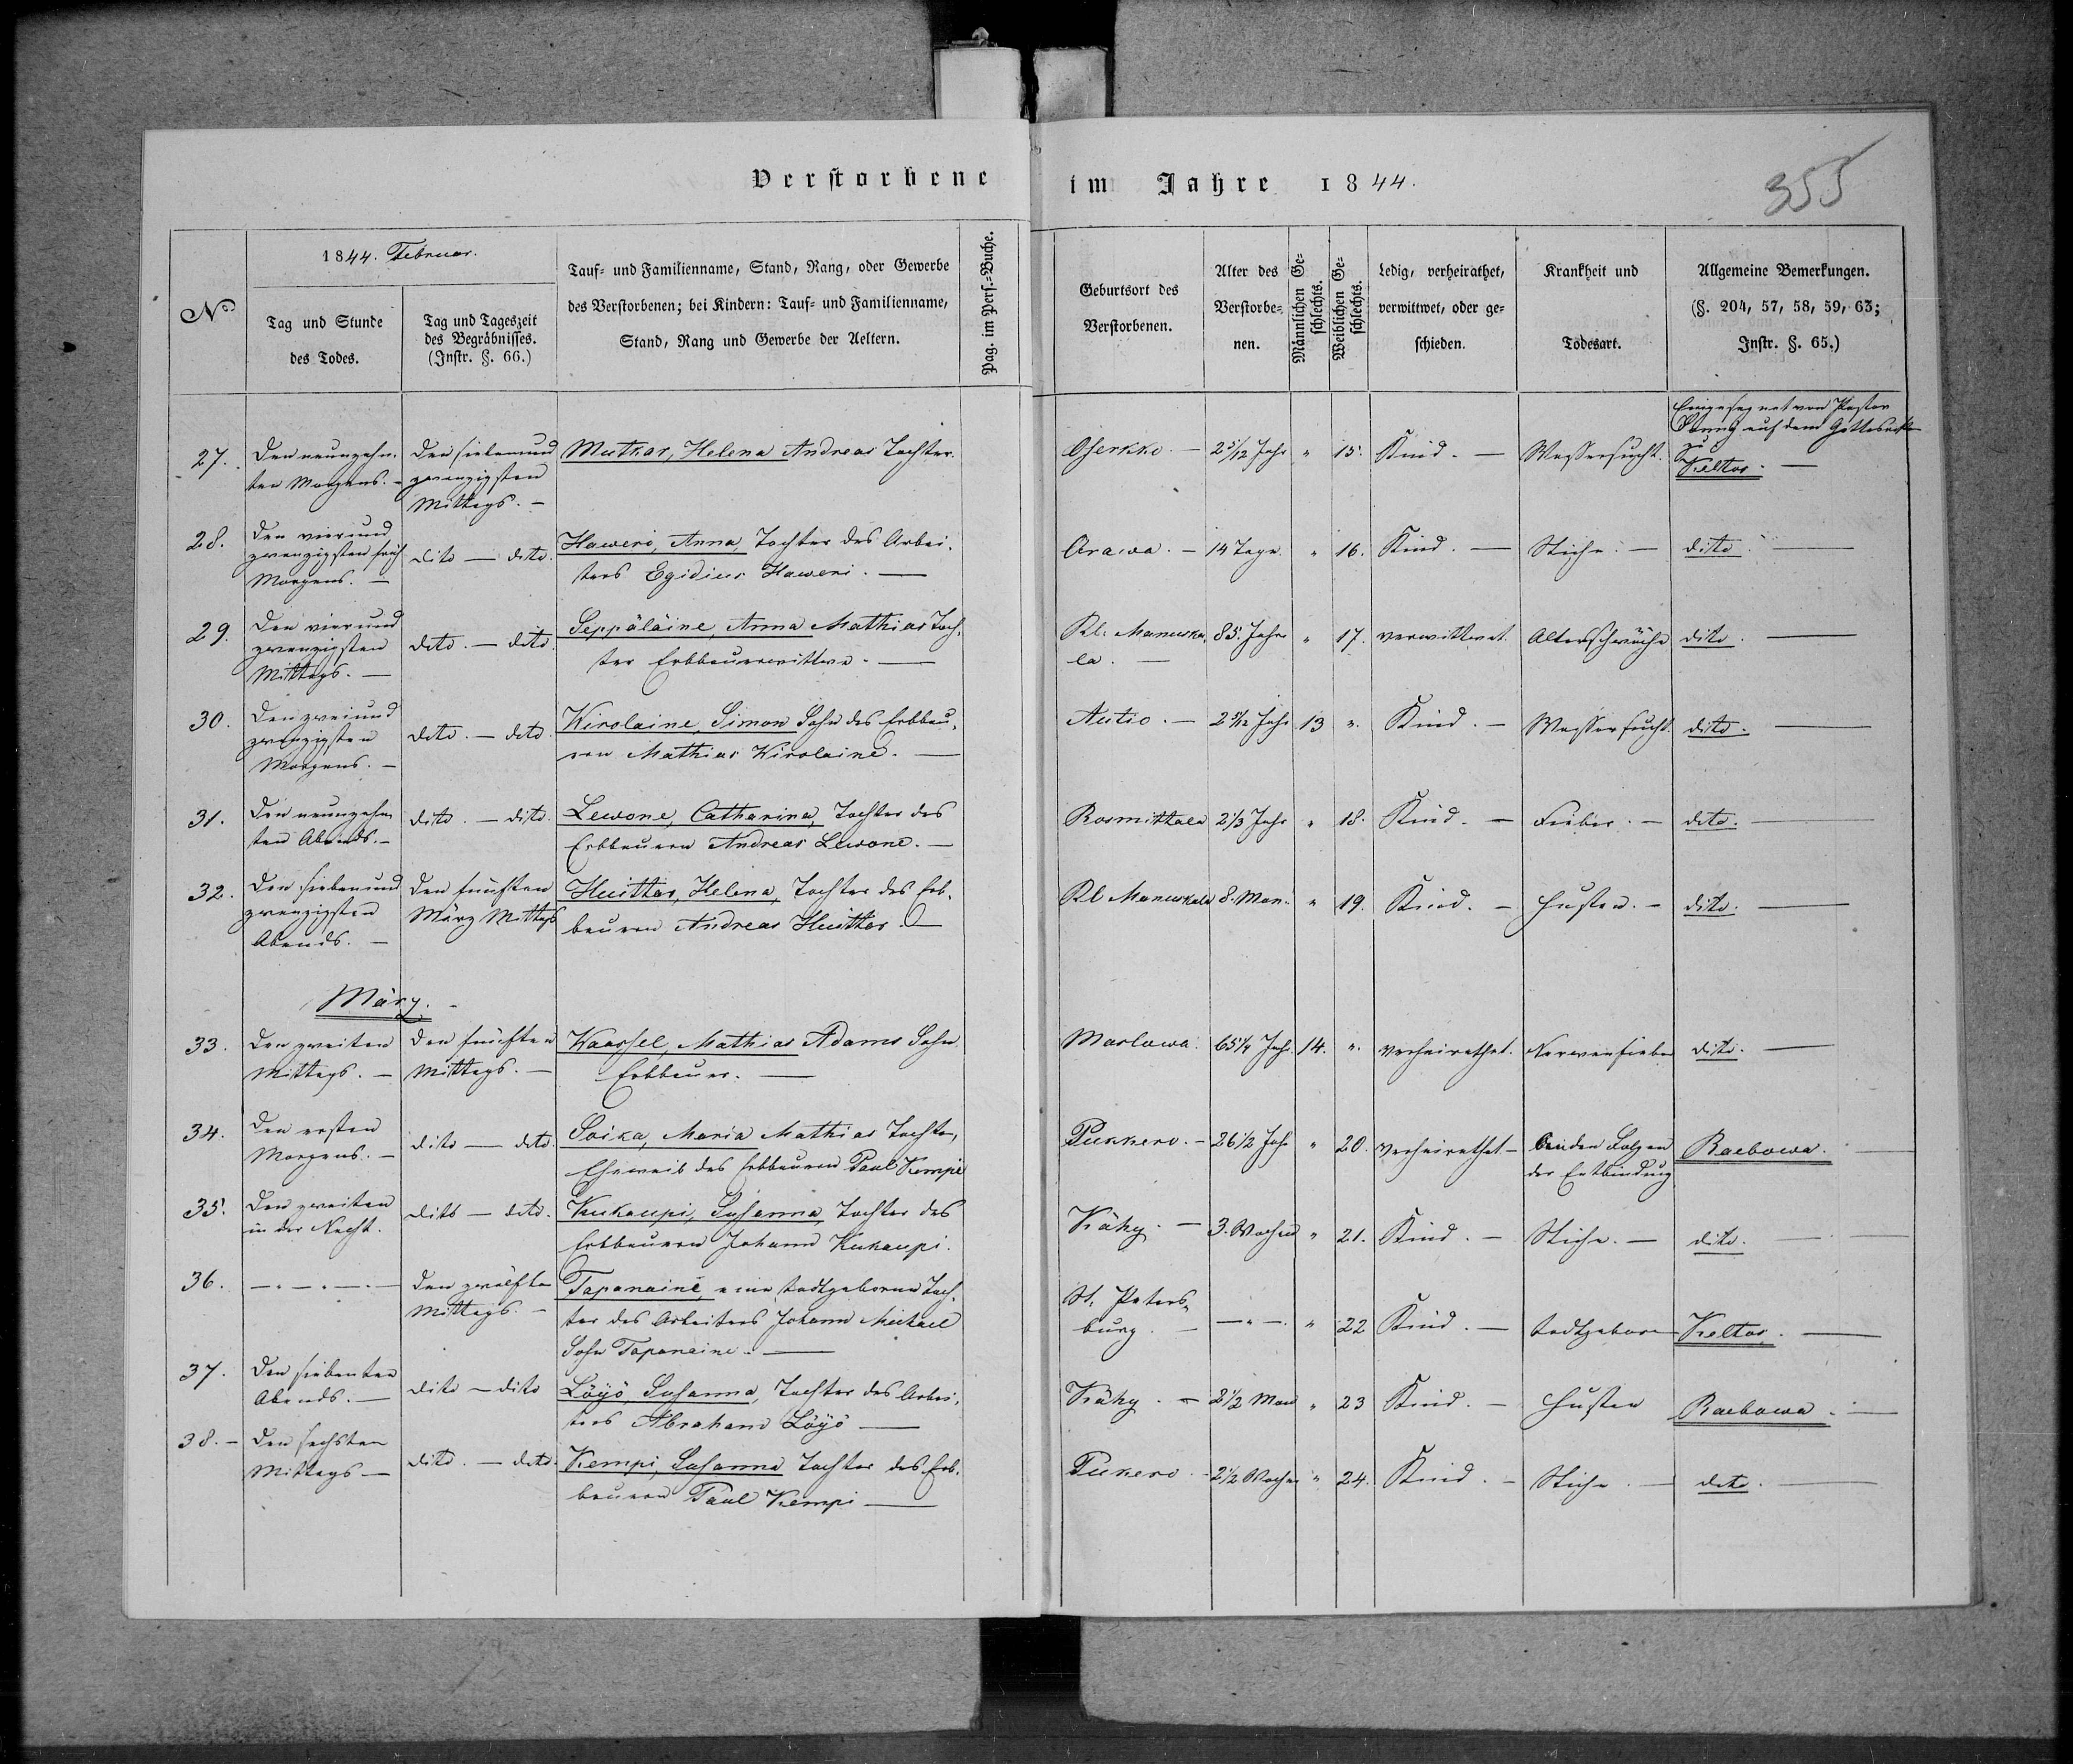 Verstorbene im Jahre 1844.
355
No
1844. Februar.
Tag und Stunde
des Todes.
Tag und Tageszeit
des Begräbnisses.
(Instr. §. 66.)
Tauf- und Familienname, Stand, Rang, oder Gewerbe
des Verstorbenen; bei Kindern: Tauf- und Familienname,
Stand, Rang und Gewerbe der Aeltern.
Pag. im Pers.-Buche.
Geburtsort des
Verstorbenen.
Alter des
Verstorbe-
nen.
Männlichen Ge-
schlechts.
Weiblichen Ge-
schlechts.
Ledig, verheirathet,
verwittwet, oder ge-
schieden.
Krankheit und
Todesart.
Allgemeine Bemerkungen.
(§. 204, 57, 58, 59, 63;
Instr. §. 65.)
27.
Den neunzehn-
ten Morgens. -
Den siebenund
zwanzigsten
Mittags. -
Mutkar, Helena Andreas Tochter.
Oserkko. -
2 5/12 Jahr
" 15.
Kind. -
Wassersucht.
Eingesegnet von Pastor
auf dem Gottesacker
zu
Keltos. -
28.
Den vierund
zwanzigsten früh
Morgens. -
dito - dito.
Haweri, Anna, Tochter des Arbei-
ters Egidius Haweri. -
Arawa. -
14 Tage.
" 16.
Kind. -
Stiche. -
dito. -
29.
Den vierund
zwanzigsten
Mittags. -
dito. - dito.
Seppäläine, Anna Mathias Toch-
ter Erbbauerwittwe. -
Kl. Manuska-
la. -
85. Jahr
" 17.
verwittwet.
Altersschwäche
dito. -
30.
Den zweiund
zwanzigsten
Morgens. -
dito. - dito
Wirolaine, Simon Sohn des Erbbau-
ern Mathias Wirolaine. -
Autio. -
2 5/12 Jahr
13 ".
Kind. -
Wassersucht.
dito. -
31.
Den neunzehn-
ten Abends. -
dito. - dito.
Lewone, Catharina, Tochter des
Erbbauern Andreas Lewone. -
Rosmittala
2 1/3 Jahr
" 18.
Kind. -
Fieber. -
dito. -
32.
Den siebenund
zwanzigsten
Abends. -
Den fünften
März Mittags
Huittar, Helena, Tochter des Erb-
bauern Andreas Huittar. -
Kl Manuskala
8. Mon.
" 19.
Kind. -
Husten. -
dito. -
März.
33.
Den zweiten
Mittags. -
Den fünften
Mittags. -
Kaassel, Mathias Adams Sohn
Erbbauer. -
Maslowa.
65 1/4 Jahr.
14. ".
verheirathet.
Nervenfieber
dito. -
34.
Den ersten
Morgens. -
dito - dito.
Soika, Maria Mathias Tochter,
Eheweib des Erbbauern Paul Kempi
Pukkero. -
26 1/2 Jahr
" 20.
verheirathet -
an den Folgen
der Entbindung
Raebowa. -
35.
Den zweiten
in der Nacht.
dito - dito.
Kukaupi, Susanna, Tochter des
Erbbauern Johann Kukaupi.
Kähy. -
3. Wochen
" 21.
Kind. -
Stiche. -
dito. -
36.
Den zwölften
Mittags. -
Tapanaine, eine todtgeborne Toch-
ter des Arbeiters Johann Michael
Sohn Tapanaine. -
St. Peters-
burg. -
- " -
" 22
Kind. -
todtgeboren
Keltos. -
37.
Den siebenten
Abends. -
dito - dito
Löyö, Susanna, Tochter des Arbei-
ters Abraham Löyö -
Kähy. -
2 1/2 Mon
" 23
Kind. -
Husten
Raebowa. -
38. -
Den sechsten
Mittags -
dito. - dito.
Kempi, Susanna Tochter des Erb-
bauern Paul Kempi -
Pukero. -
2 1/2 Wochen
" 24.
Kind. -
Stiche. -
dito. -